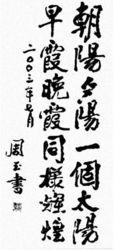 朝陽夕陽一個太陽
早霞晚霞同樣燦煌
二00三年七月
周玉書